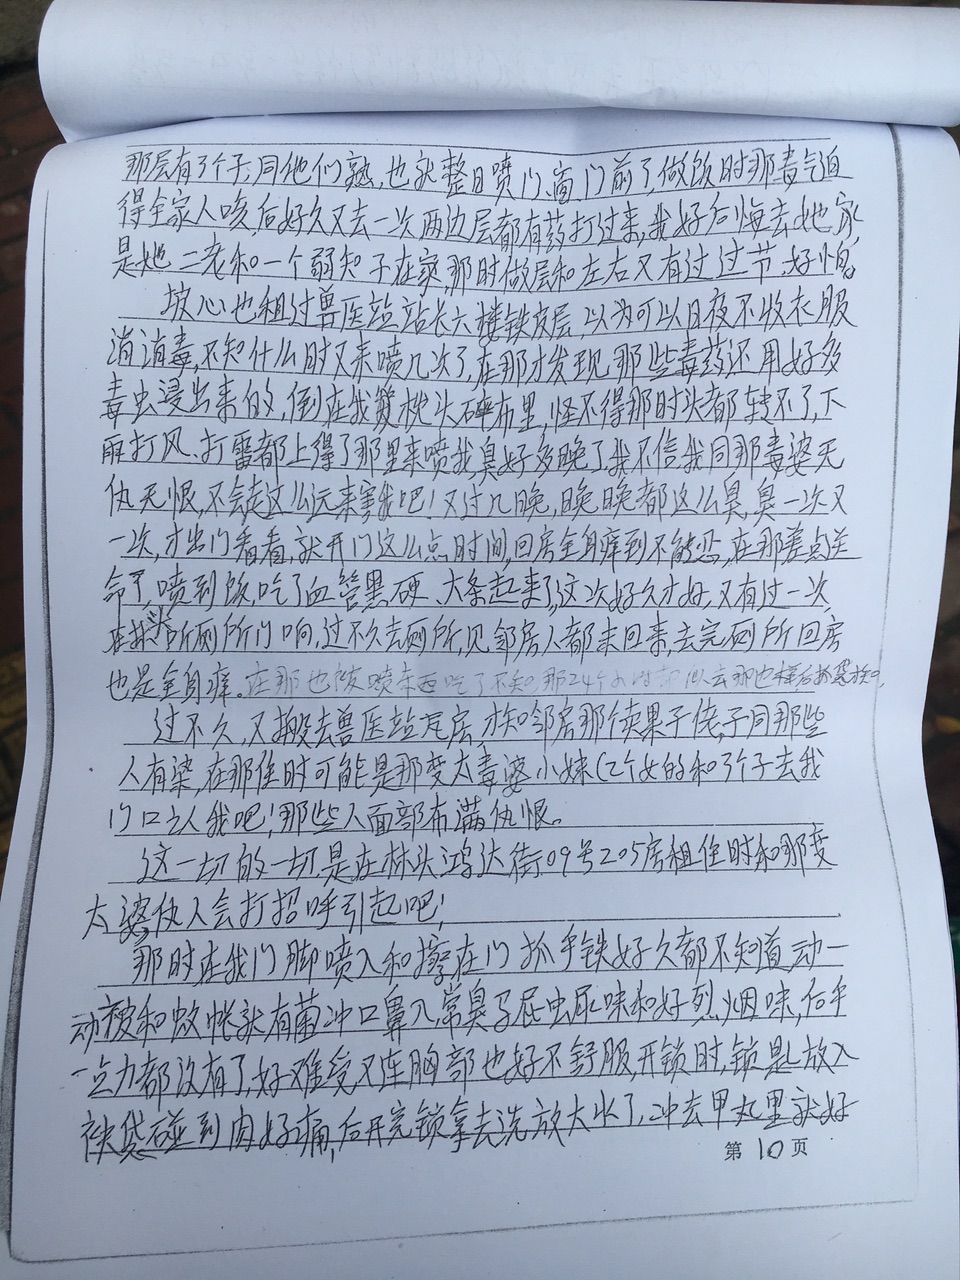 那层有了个子,同他们熟,也就整日喷门、窗、门前了,做饭时那毒气迫
得全家人咳后好久又去一次两边层都有药打过来,我好后悔去她家,
是她二老和一个弱知子在家,那时做层和左右又有过过节,好怕。
坡心也租过兽医站站长六楼铁皮层,以为可以日夜不收衣服
消消毒,不知什么时又来喷几次了,在那才发现那些毒药还用好多
毒虫浸出来的,倒在我凳枕头碎布里,怪不得那时头都转不了,下
雨打风、打雷都上得了那里来喷我,臭好多晚了我不信我同那毒婆无
仇无恨,不会走这么远来害我吧!又过几晚,晚晚都这么臭,臭一次又
一次,才出门看看,就开门这么点时间,回房全身痒到不能忍,在那差点送
命了,喷到饭,吃了血管黑硬、大条起来了,这次好久才好,又有过一次
听厕所门响,过不久去厕所,见邻房人都未回来,去完厕所回房
也是全身痒。在那也被喷东西吃了不知那24个小时
过不久,又搬去兽医站瓦房才知邻房那个卖果子佬,子同那些
人有染,在那住时可能是那变太毒婆小妹(2个女的和3个子去我
门口认我吧!那些人面部布满仇恨。
这一切的一切,是在林头鸿达街09号205房租住时和那变
太婆仇人会打招呼引起吧!
那时在我门脚喷入和擦在门抓手铁好久都不知道动一
动被和蚊帐就有菌冲口鼻入,常臭子屁虫尿味和好烈烟味,后手
一点力都没有了,好难受又连胸部也好不舒服,开锁时,锁匙放入
裤袋碰到肉好痛,后开完锁拿去洗放大水了,冲去甲丸里就好
第10页